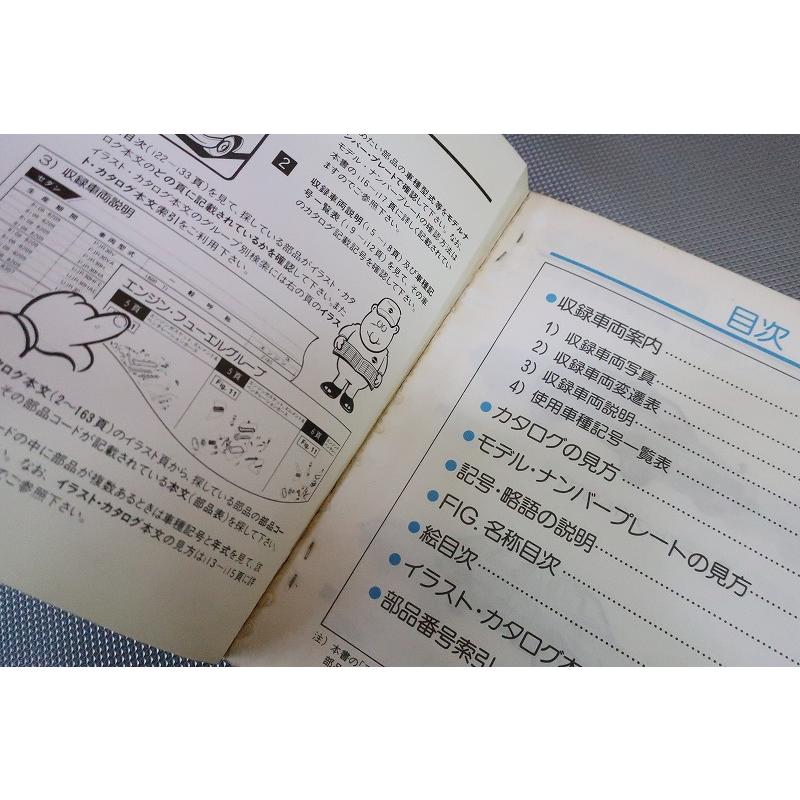 2
めたい部品の車種型式等をモデルナ
ンバー・プレートで確認して下さい。なお、
モデル・ナンバープレートの確認方法は
本書のi16-i17頁に詳しく記載されてい
ますのでご参照下さい。
収録車両説明(i5-i8頁)及び車種記
号一覧表(i9-i12頁)を見て、その車
のカタログ記載記号を確認して下さい。
目次(i22-i33頁)を見て、探している部品がイラスト・カタ
ログ本文のどの頁に記載されているかを確認して下さい。また
イラスト・カタログ本文のグループ別検索には右の頁のイラス
ト・カタログ本文索引をご利用下さい。
3) 収録車両説明
セダン
生産期間
車両型式
エンジン・フューエルグループ
5頁
5頁
Fig. 11
6頁
Fig. 11
タログ本文(2-163頁)のイラスト頁から、探している部品の部品コー
その部品コードが記載されている本文(部品表)を探して下さい。
ードの中に部品が複数あるときは車種記号と年式を見て、該
なお、イラスト・カタログ本文の見方はi13-i15頁に詳
でご参照下さい。
目次
●収録車両案内
1) 収録車両写真
2) 収録車両変遷表
3) 収録車両説明
4) 使用車種記号一覧表
●カタログの見方
●モデル・ナンバープレートの見方
●記号・略語の説明
●FIG. 名称目次
●絵目次
●イラスト・カタログ本
●部品番号索引
注) 本書の